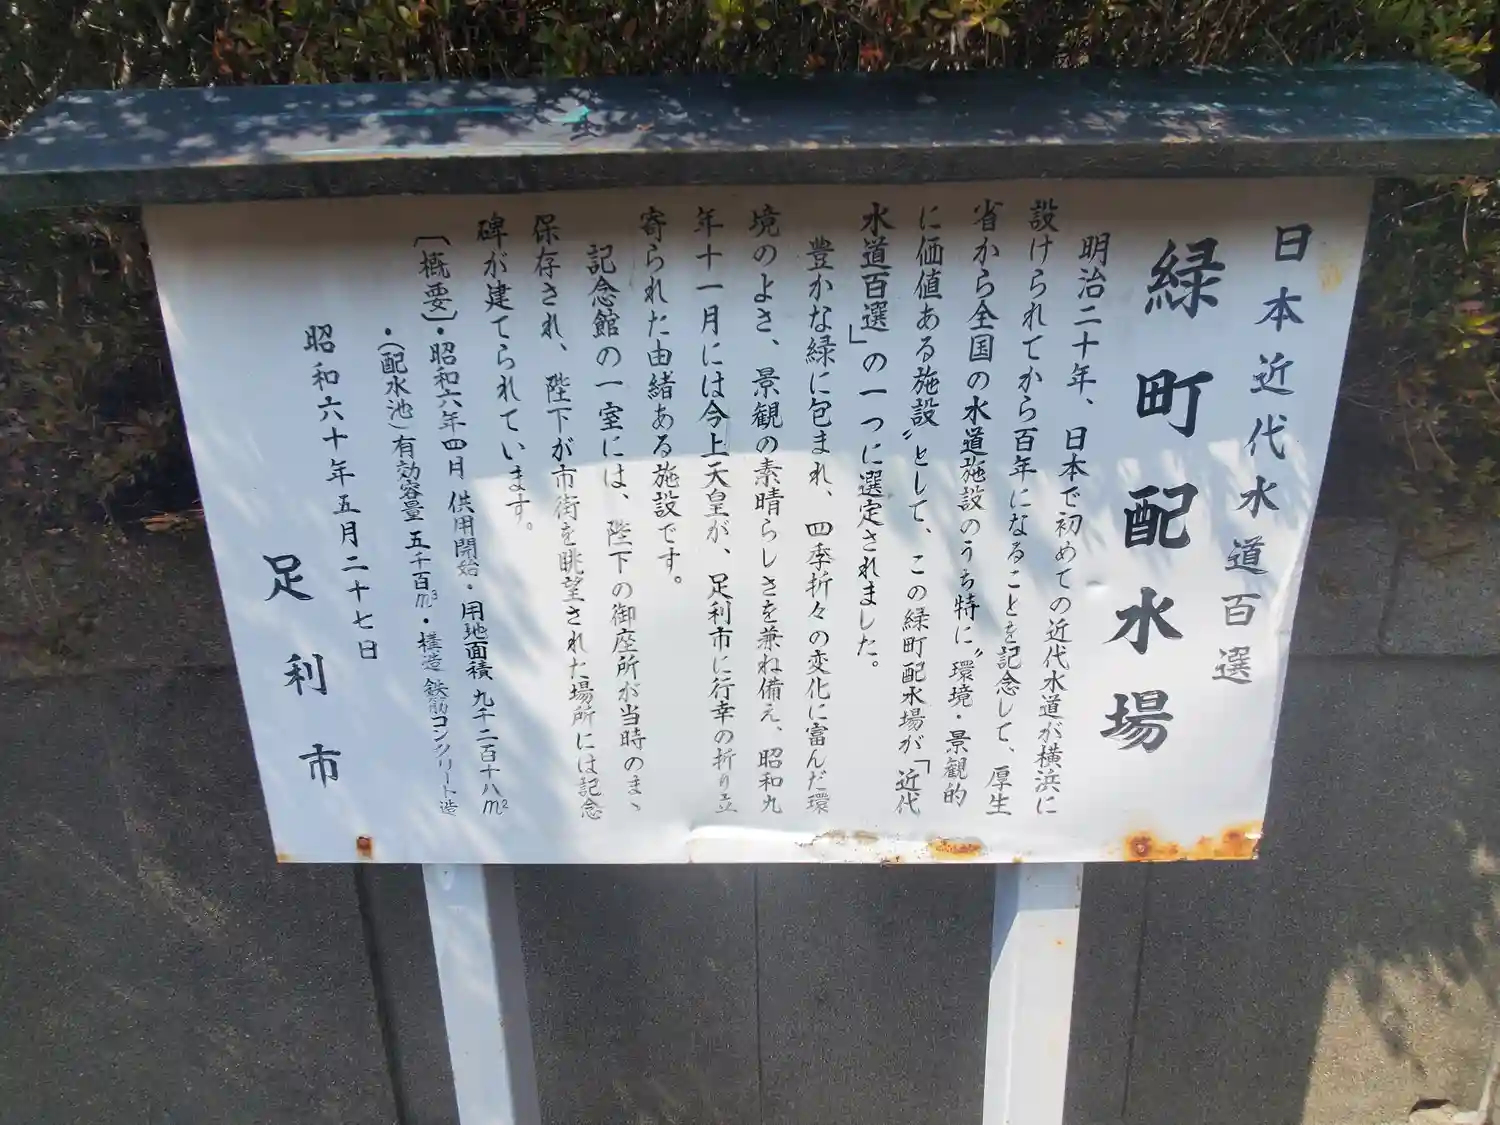 日本近代水道百選
緑町配水場
明治二十年、日本で初めての近代水道が横浜に
設けられてから百年になることを記念して、厚生
省から全国の水道施設のうち特に〝環境・景観的
に価値ある施設〟として、この緑町配水場が「近代
水道百選」の一つに選定されました。
豊かな緑に包まれ、四季折々の変化に富んだ環
境のよさ、景観の素晴らしさを兼ね備え、昭和九
年十一月には今上天皇が、足利市に行幸の折り立
寄られた由緒ある施設です。
記念館の一室には、陛下の御座所が当時のまゝ
保存され、陛下が市街を眺望された場所には記念
碑が建てられています。
〔概要〕・昭和六年四月 供用開始・用地面積 九千二百十八m²
・(配水池)有効容量 五千百m³・構造 鉄筋コンクリート造
昭和六十年五月二十七日
足利市